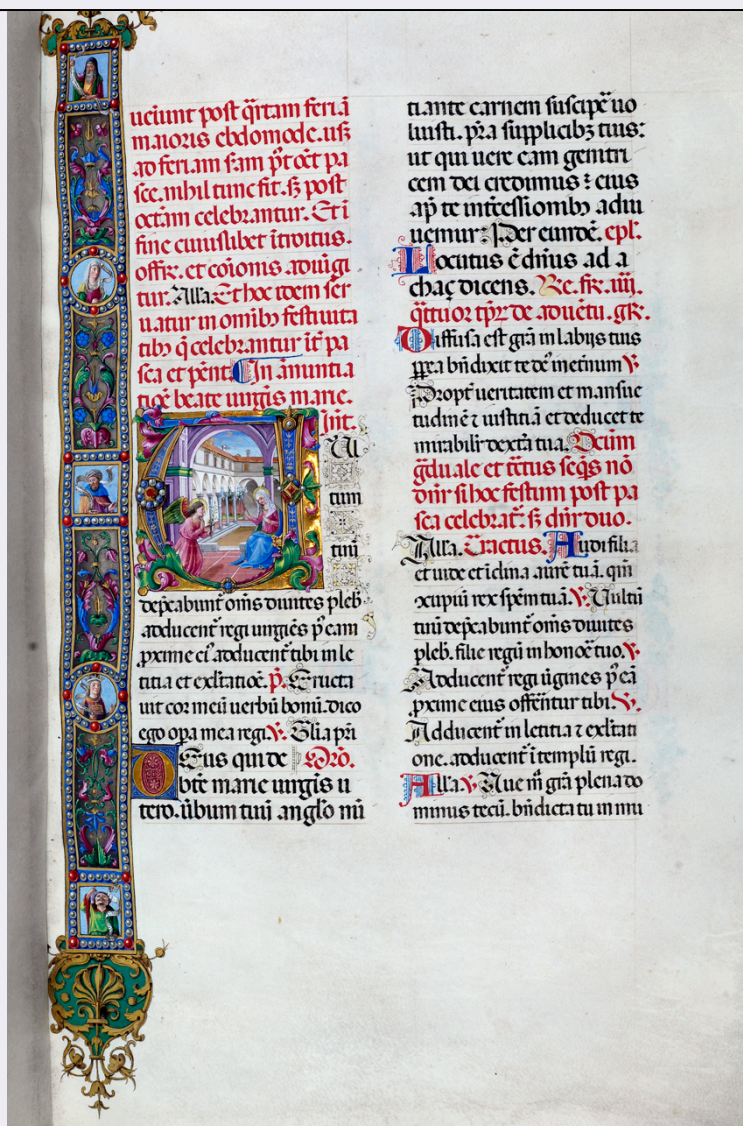 ueiunt post q̄rtam feriā
maioris ebdomode. usq̨
ad feriam s̄am p̄t oct̄ pa
sce. nihil tunc fit. sꝫ post
octām celebrantur. Et ī
fine cuiuslibet ītroitus.
offīr. et cōionis adūigi
tur. Alľa. Et hoc idem ser
uatur in omībꝫ festiuita
tibꝫ q̄ celebrantur it̄ pa
sca et pent̄. In ānuntia
tiōe beate uirgīs marie.
Int̄.
Vul
tum
tuū
depc̄abunt om̄s diuites pleb.
adducent̄ regi uirgīes p̄ eam
ꝓxime eī adducent̄ tibi in le
titia et exľtatiōe. p̄. Eructa
uit cor meū uerbū bonū. dico
ego opa mea regi. V. Gľia pr̄i
Deus qui de Orō.
bt̄e marie uirgīs u
tero. ūbum tuū anglo nū
tiante carnem suscipē uo
luisti. p̄ra supplicibꝫ tuis:
ut qui uere eam genitri
cem dei credimus: eius
ap̄ te int̄cessionibꝫ adiu
uemur. Per eundē. epľ.
Locutus ē dn̄us ad a
chaꝫ dicens. Re. fr̄. iiij.
q̄ttuor tp̄r de aduētu. gr̄.
Diffusa est grā in labijs tuis
ꝓp̄ea bn̄dixit te dē inet̄num V.
Propt̄ ueritatem et mansue
tudinē ⁊ iustitiā et deducet te
mirabilr̄ dext̄a tua. Dc̄um
gduale et tc̄tus seq̄s nō
dn̄r si hoc festum post pa
sca celebrat̄. sꝫ dn̄r duo.
Alľa. Tractus. Audi filia
et uide et īclina aurē tuā. qm̄
ɔcupiuī rex spēm tuā. V. Vultū
tuū depc̄abunt om̄s diuites
pleb. filie regū in honoē tuo. V.
Adducent̄ regi ūgines p̄ eā
ꝓxime eius offent̄ur tibi. V.
Adducent̄ in letitia ⁊ exľtati
one. adducent̄ ī templū regi.
Alľa. V. Aue m̄ grā plena do
minus tecū. bn̄dicta tu in mu